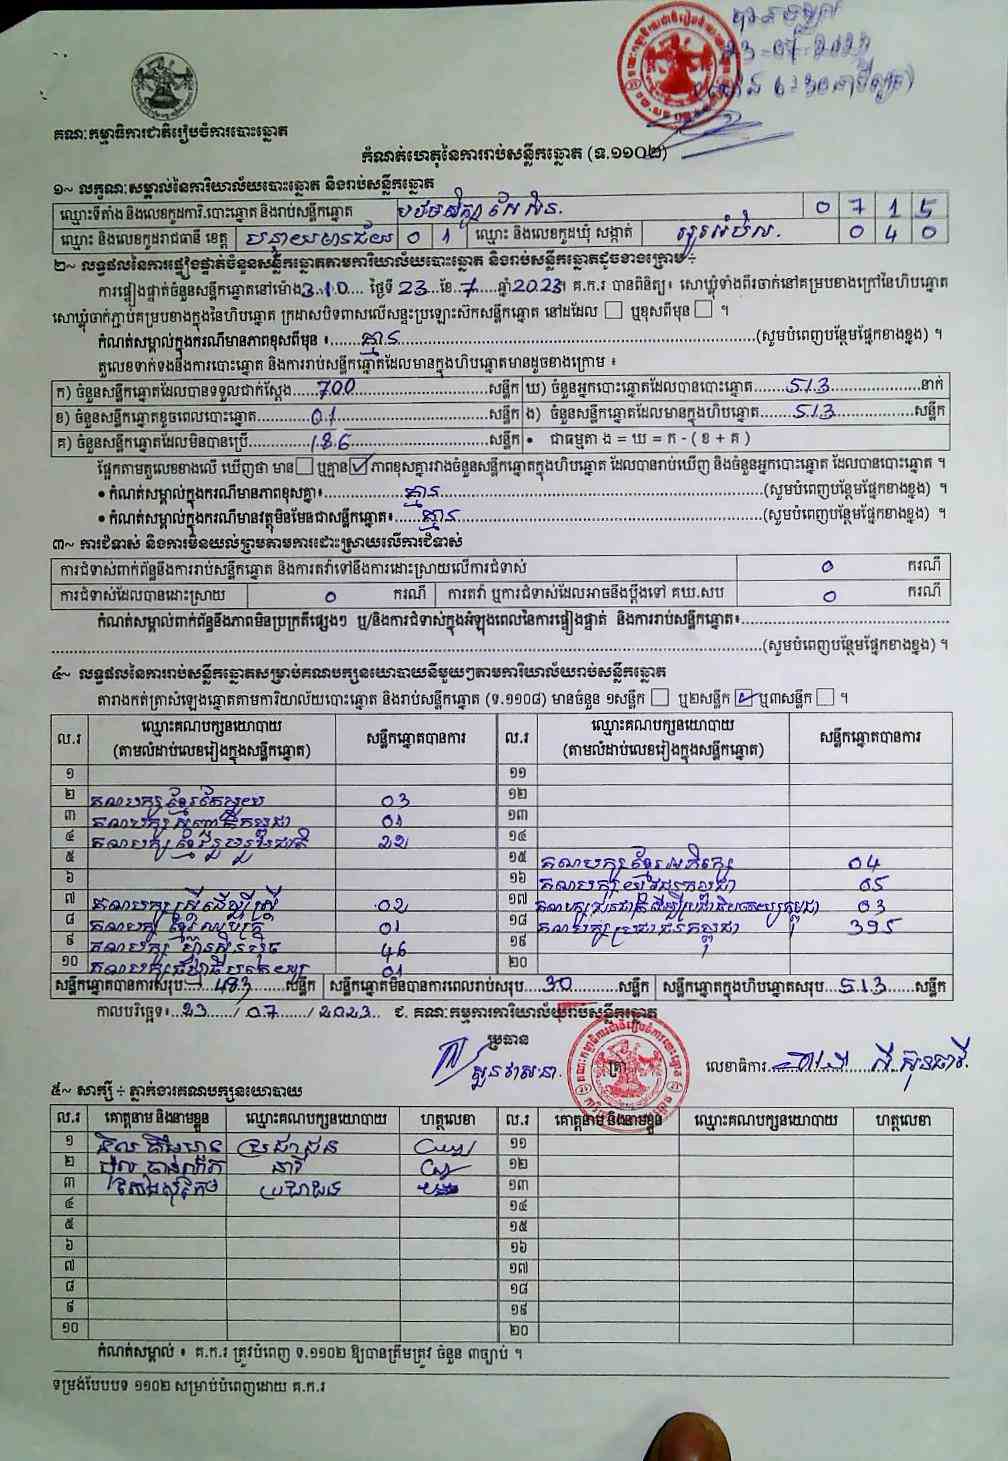 គណៈកម្មាធិការជាតិរៀបចំការបោះឆ្នោត
កំណត់ហេតុនៃការរាប់សន្លឹកឆ្នោត (ទ.១១០២)
១~ លក្ខណៈសម្គាល់នៃការិយាល័យបោះឆ្នោត និងរាប់សន្លឹកឆ្នោត
ឈ្មោះទីតាំង និងលេខកូដការិ.បោះឆ្នោត និងរាប់សន្លឹកឆ្នោត 0 7 1 5
ឈ្មោះ និងលេខកូដរាជធានី ខេត្ត បន្ទាយមានជ័យ 0 1 ឈ្មោះ និងលេខកូដឃុំ សង្កាត់ 0 4 0
២~ លទ្ធផលនៃការផ្ទៀងផ្ទាត់ចំនួនសន្លឹកឆ្នោតតាមការិយាល័យបោះឆ្នោត និងរាប់សន្លឹកឆ្នោតដូចខាងក្រោម ÷
ការផ្ទៀងផ្ទាត់ចំនួនសន្លឹកឆ្នោតនៅម៉ោង 3:10 ថ្ងៃទី 23 ខែ 7 ឆ្នាំ 2023។ គ.ក.រ បានពិនិត្យ៖ សោឃ្លុំទាំងពីរចាក់នៅគម្របខាងក្រៅនៃហិបឆ្នោត
សោឃ្លុំចាក់ភ្ជាប់គម្របខាងក្នុងនៃហិបឆ្នោត ក្រដាសបិទពាសលើសន្ទះប្រឡោះស៊កសន្លឹកឆ្នោត នៅដដែល ឬខុសពីមុន ។
កំណត់សម្គាល់ក្នុងករណីមានភាពខុសពីមុន ៖ គ្មាន (សូមបំពេញបន្ថែមផ្នែកខាងខ្នង) ។
តួលេខទាក់ទងនឹងការបោះឆ្នោត និងការរាប់សន្លឹកឆ្នោតដែលមានក្នុងហិបឆ្នោតមានដូចខាងក្រោម ៖
ក) ចំនួនសន្លឹកឆ្នោតដែលបានទទួលជាក់ស្តែង 700 សន្លឹក ឃ) ចំនួនអ្នកបោះឆ្នោតដែលបានបោះឆ្នោត 513 នាក់
ខ) ចំនួនសន្លឹកឆ្នោតខូចពេលបោះឆ្នោត 01 សន្លឹក ង) ចំនួនសន្លឹកឆ្នោតដែលមានក្នុងហិបឆ្នោត 513 សន្លឹក
គ) ចំនួនសន្លឹកឆ្នោតដែលមិនបានប្រើ 186 សន្លឹក • ជាធម្មតា ង = ឃ = ក - ( ខ + គ )
ផ្អែកតាមតួលេខខាងលើ ឃើញថា មាន ឬគ្មាន ✓ ភាពខុសគ្នារវាងចំនួនសន្លឹកឆ្នោតក្នុងហិបឆ្នោត ដែលបានរាប់ឃើញ និងចំនួនអ្នកបោះឆ្នោត ដែលបានបោះឆ្នោត ។
• កំណត់សម្គាល់ក្នុងករណីមានភាពខុសគ្នា៖ គ្មាន (សូមបំពេញបន្ថែមផ្នែកខាងខ្នង) ។
• កំណត់សម្គាល់ក្នុងករណីមានវត្ថុមិនមែនជាសន្លឹកឆ្នោត៖ គ្មាន (សូមបំពេញបន្ថែមផ្នែកខាងខ្នង) ។
៣~ ការជំទាស់ និងការមិនយល់ព្រមតាមការដោះស្រាយលើការជំទាស់
ការជំទាស់ពាក់ព័ន្ធនឹងការរាប់សន្លឹកឆ្នោត និងការតវ៉ាទៅនឹងការដោះស្រាយលើការជំទាស់ 0 ករណី
ការជំទាស់ដែលបានដោះស្រាយ 0 ករណី ការតវ៉ា ឬការជំទាស់ដែលអាចនឹងប្តឹងទៅ គឃ.សប 0 ករណី
កំណត់សម្គាល់ពាក់ព័ន្ធនឹងភាពមិនប្រក្រតីផ្សេងៗ ឬ/និងការជំទាស់ក្នុងអំឡុងពេលនៃការផ្ទៀងផ្ទាត់ និងការរាប់សន្លឹកឆ្នោត៖
(សូមបំពេញបន្ថែមផ្នែកខាងខ្នង) ។
៤~ លទ្ធផលនៃការរាប់សន្លឹកឆ្នោតសម្រាប់គណបក្សនយោបាយនីមួយៗតាមការិយាល័យរាប់សន្លឹកឆ្នោត
តារាងកត់ត្រាសំឡេងឆ្នោតតាមការិយាល័យបោះឆ្នោត និងរាប់សន្លឹកឆ្នោត (ទ.១១០៨) មានចំនួន ១សន្លឹក ឬ២សន្លឹក ✓ ឬ៣សន្លឹក ។
ល.រ ឈ្មោះគណបក្សនយោបាយ (តាមលំដាប់លេខរៀងក្នុងសន្លឹកឆ្នោត) សន្លឹកឆ្នោតបានការ ល.រ ឈ្មោះគណបក្សនយោបាយ (តាមលំដាប់លេខរៀងក្នុងសន្លឹកឆ្នោត) សន្លឹកឆ្នោតបានការ
១ ១១
២ គណបក្ស ខ្មែរ 03 ១២
៣ គណបក្ស 01 ១៣
៤ គណបក្ស ខ្មែររួបរួមជាតិ 22 ១៤
៥ ១៥ គណបក្ស ខ្មែរអភិរក្ស 04
៦ ១៦ គណបក្ស យុវជនកម្ពុជា 05
៧ គណបក្ស ស្រី 02 ១៧ គណបក្ស 03
៨ គណបក្ស 01 ១៨ គណបក្ស ប្រជាជនកម្ពុជា 395
៩ គណបក្ស ហ៊្វុនស៊ិនប៉ិច 46 ១៩
១០ គណបក្ស 01 ២០
សន្លឹកឆ្នោតបានការសរុប 483 សន្លឹក សន្លឹកឆ្នោតមិនបានការពេលរាប់សរុប 30 សន្លឹក សន្លឹកឆ្នោតក្នុងហិបឆ្នោតសរុប 513 សន្លឹក
កាលបរិច្ឆេទ៖ 23 / 07 / 2023 ជ. គណៈកម្មការការិយាល័យរាប់សន្លឹកឆ្នោត
ប្រធាន
ត្រា
លេខាធិការ
៥~ សាក្សី ÷ ភ្នាក់ងារគណបក្សនយោបាយ
ល.រ គោត្តនាម និងនាមខ្លួន ឈ្មោះគណបក្សនយោបាយ ហត្ថលេខា ល.រ គោត្តនាម និងនាមខ្លួន ឈ្មោះគណបក្សនយោបាយ ហត្ថលេខា
១ ប្រជាជន ១១
២ ១២
៣ ប្រជាជន ១៣
៤ ១៤
៥ ១៥
៦ ១៦
៧ ១៧
៨ ១៨
៩ ១៩
១០ ២០
កំណត់សម្គាល់ ៖ គ.ក.រ ត្រូវបំពេញ ទ.១១០២ ឱ្យបានត្រឹមត្រូវ ចំនួន ៣ច្បាប់ ។
ទម្រង់បែបបទ ១១០២ សម្រាប់បំពេញដោយ គ.ក.រ